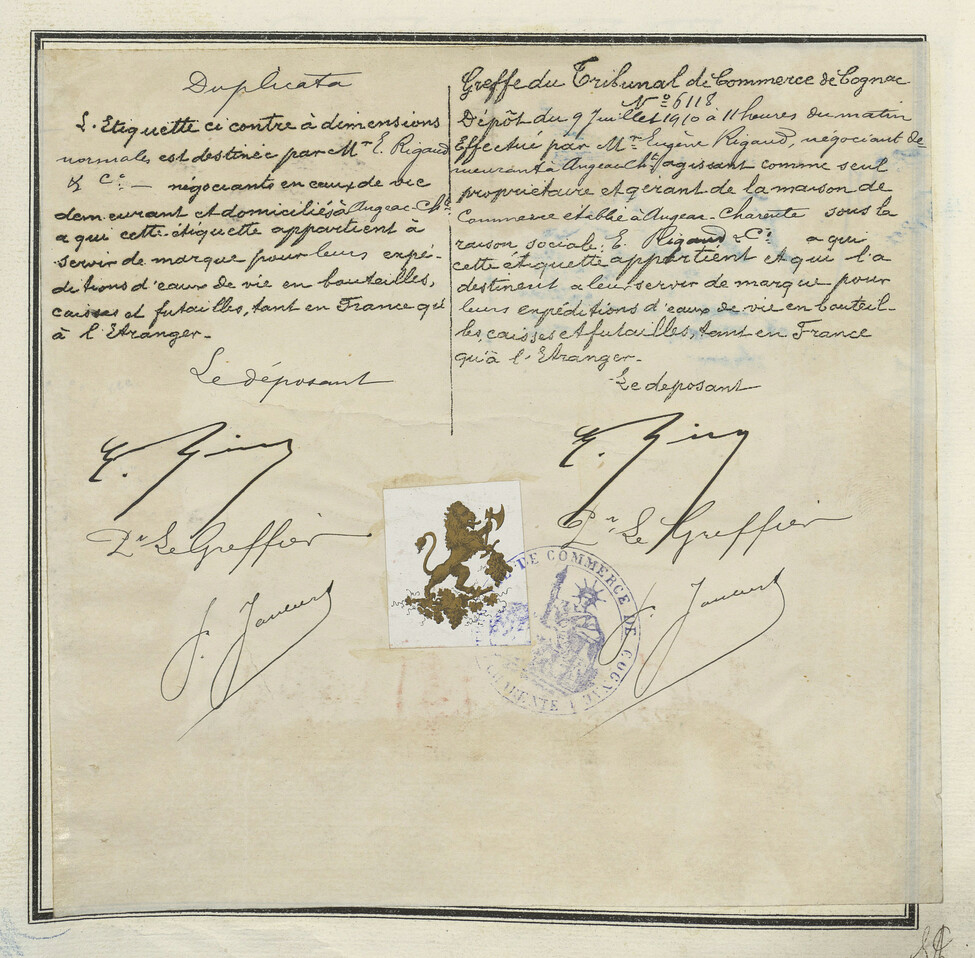 Duplicata
L'Etiquette ci contre à dimensions
normales est destinée par Mr E. Rigaud
& Cie — négociants en eaux de vie
demeurant et domiciliés à Angeac-Chte
a qui cette étiquette appartient à
servir de marque pour leurs expé-
ditions d'eaux de vie en bouteilles,
caisses et futailles, tant en France qu'
à l'Etranger.
Le déposant
Pr Le Greffier
Greffe du Tribunal de Commerce de Cognac
No 6118
Dépôt du 9 Juillet 1910 à 11 heures du matin
Effectué par Mr Eugène Rigaud, négociant de-
meurant à Angeac-Chte, agissant comme seul
propriétaire et gérant de la maison de
Commerce établie à Angeac-Charente sous la
raison sociale: E. Rigaud & Cie a qui
cette étiquette appartient et qui l'a
destinent a leur servir de marque pour
leurs expéditions d'eaux de vie en bouteil-
les, caisses et futailles, tant en France
qu'à l'Etranger.
Le deposant
Pr Le Greffier
DE COMMERCE DE COGNAC
CHARENTE